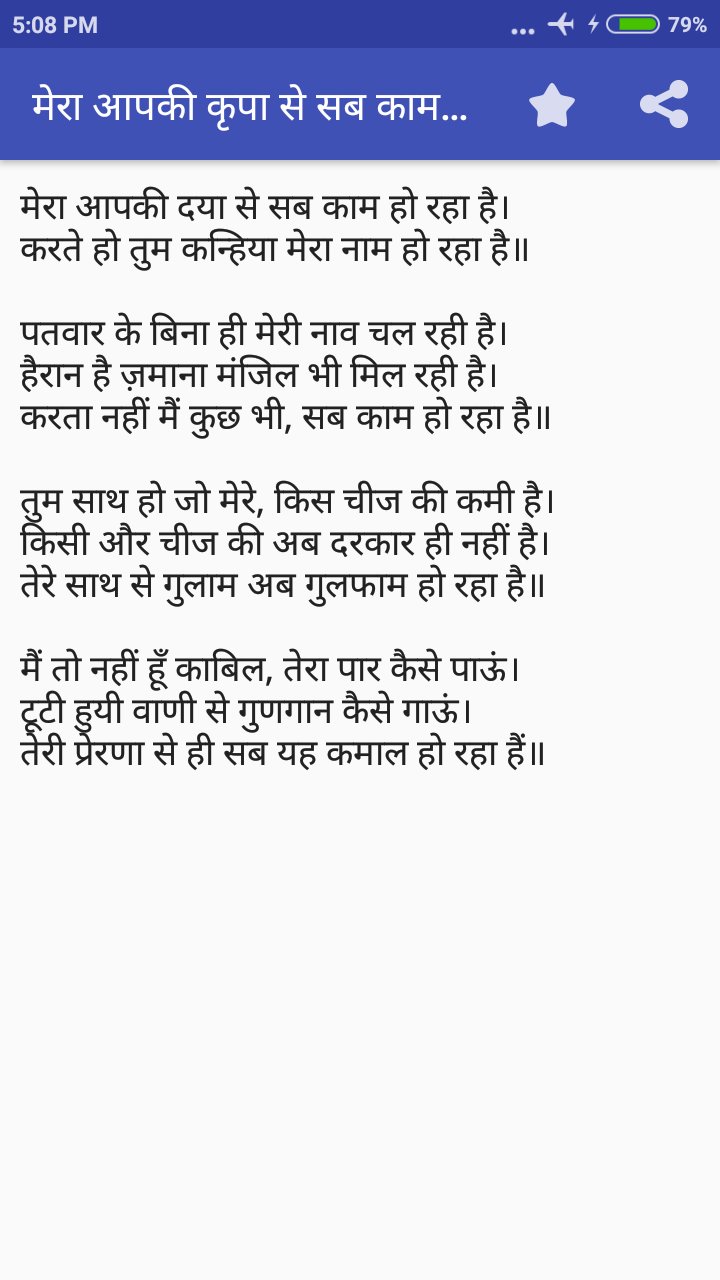 5:08 PM
... 79%
मेरा आपकी कृपा से सब काम...
मेरा आपकी दया से सब काम हो रहा है।
करते हो तुम कन्हिया मेरा नाम हो रहा है॥
पतवार के बिना ही मेरी नाव चल रही है।
हैरान है ज़माना मंजिल भी मिल रही है।
करता नहीं मैं कुछ भी, सब काम हो रहा है॥
तुम साथ हो जो मेरे, किस चीज की कमी है।
किसी और चीज की अब दरकार ही नहीं है।
तेरे साथ से गुलाम अब गुलफाम हो रहा है॥
मैं तो नहीं हूँ काबिल, तेरा पार कैसे पाऊं।
टूटी हुयी वाणी से गुणगान कैसे गाऊं।
तेरी प्रेरणा से ही सब यह कमाल हो रहा हैं॥